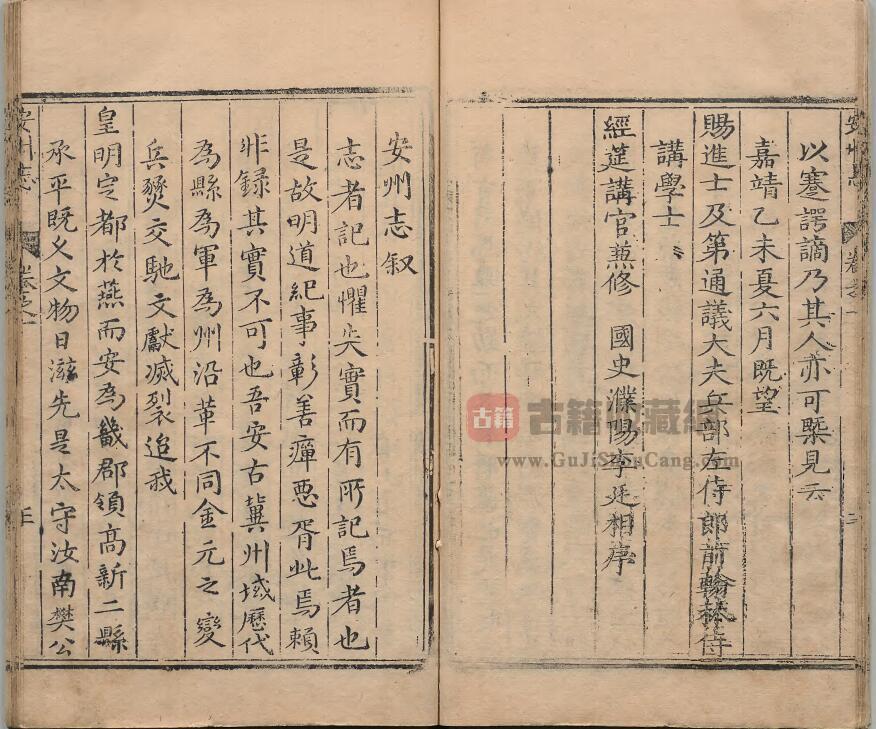 以蹇諤謫乃其人亦可槩見云
嘉靖乙未夏六月既望
賜進士及第通議大夫兵部左侍郎前翰林侍
講學士
經筵講官兼修 國史濮陽李廷相序
安州志叙
志者記也懼失實而有所記焉者也
是故明道紀事彰善癉惡胥此焉賴
非録其實不可也吾安古冀州域歷代
為縣為軍為州沿革不同金元之變
兵燹交馳文獻滅裂迨我
皇明定都於燕而安為畿郡領高新二縣
承平既久文物日滋先是太守汝南樊公
安州志 卷之一
安州志 卷之一 三
古籍
古籍收藏網
www.GuJiShouCang.com